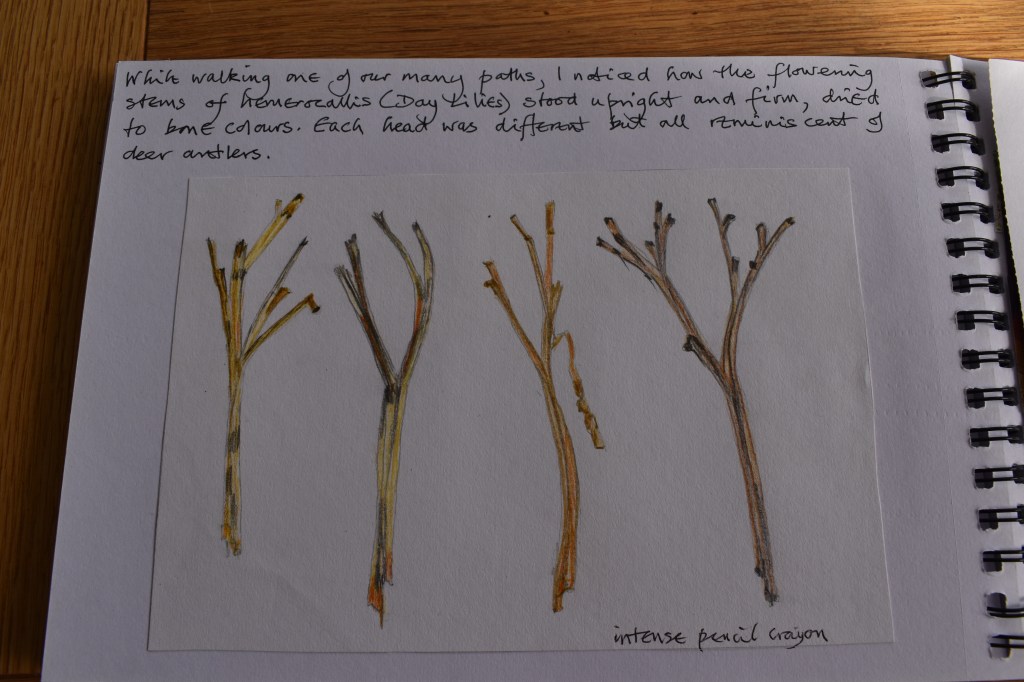 While walking one of our many paths, I noticed how the flowering
stems of hemerocallis (Day Lilies) stood upright and firm, dried
to bone colours. Each head was different but all reminiscent of
deer antlers.
intense pencil crayon